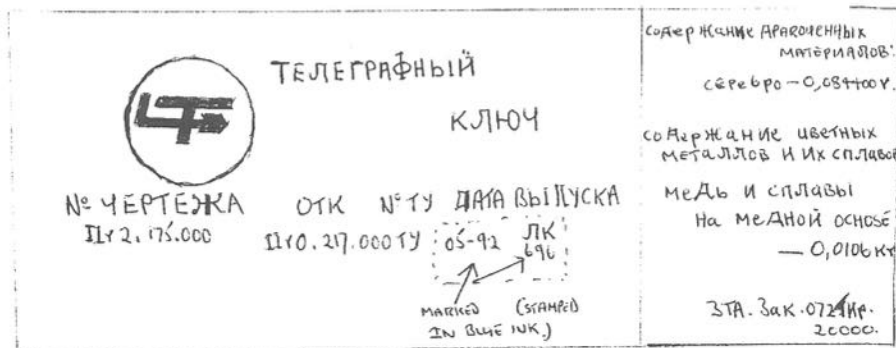 ТЕЛЕГРАФНЫЙ
КЛЮЧ
№ ЧЕРТЕЖА ОТК № ТУ ДАТА ВЫПУСКА
ПУ2.175.000 ПУ0.217.000ТУ 05-92 ЛК
696
MARKED (STAMPED
IN BLUE INK.)
СОДЕРЖАНИЕ
МАТЕРИАЛОВ:
СЕРЕБРО -
СОДЕРЖАНИЕ ЦВЕТНЫХ
МЕТАЛЛОВ И ИХ СПЛАВОВ
МЕДЬ И СПЛАВЫ
НА МЕДНОЙ ОСНОВЕ
— 0,0106 КГ
ЗТА. ЗАК.
20000.